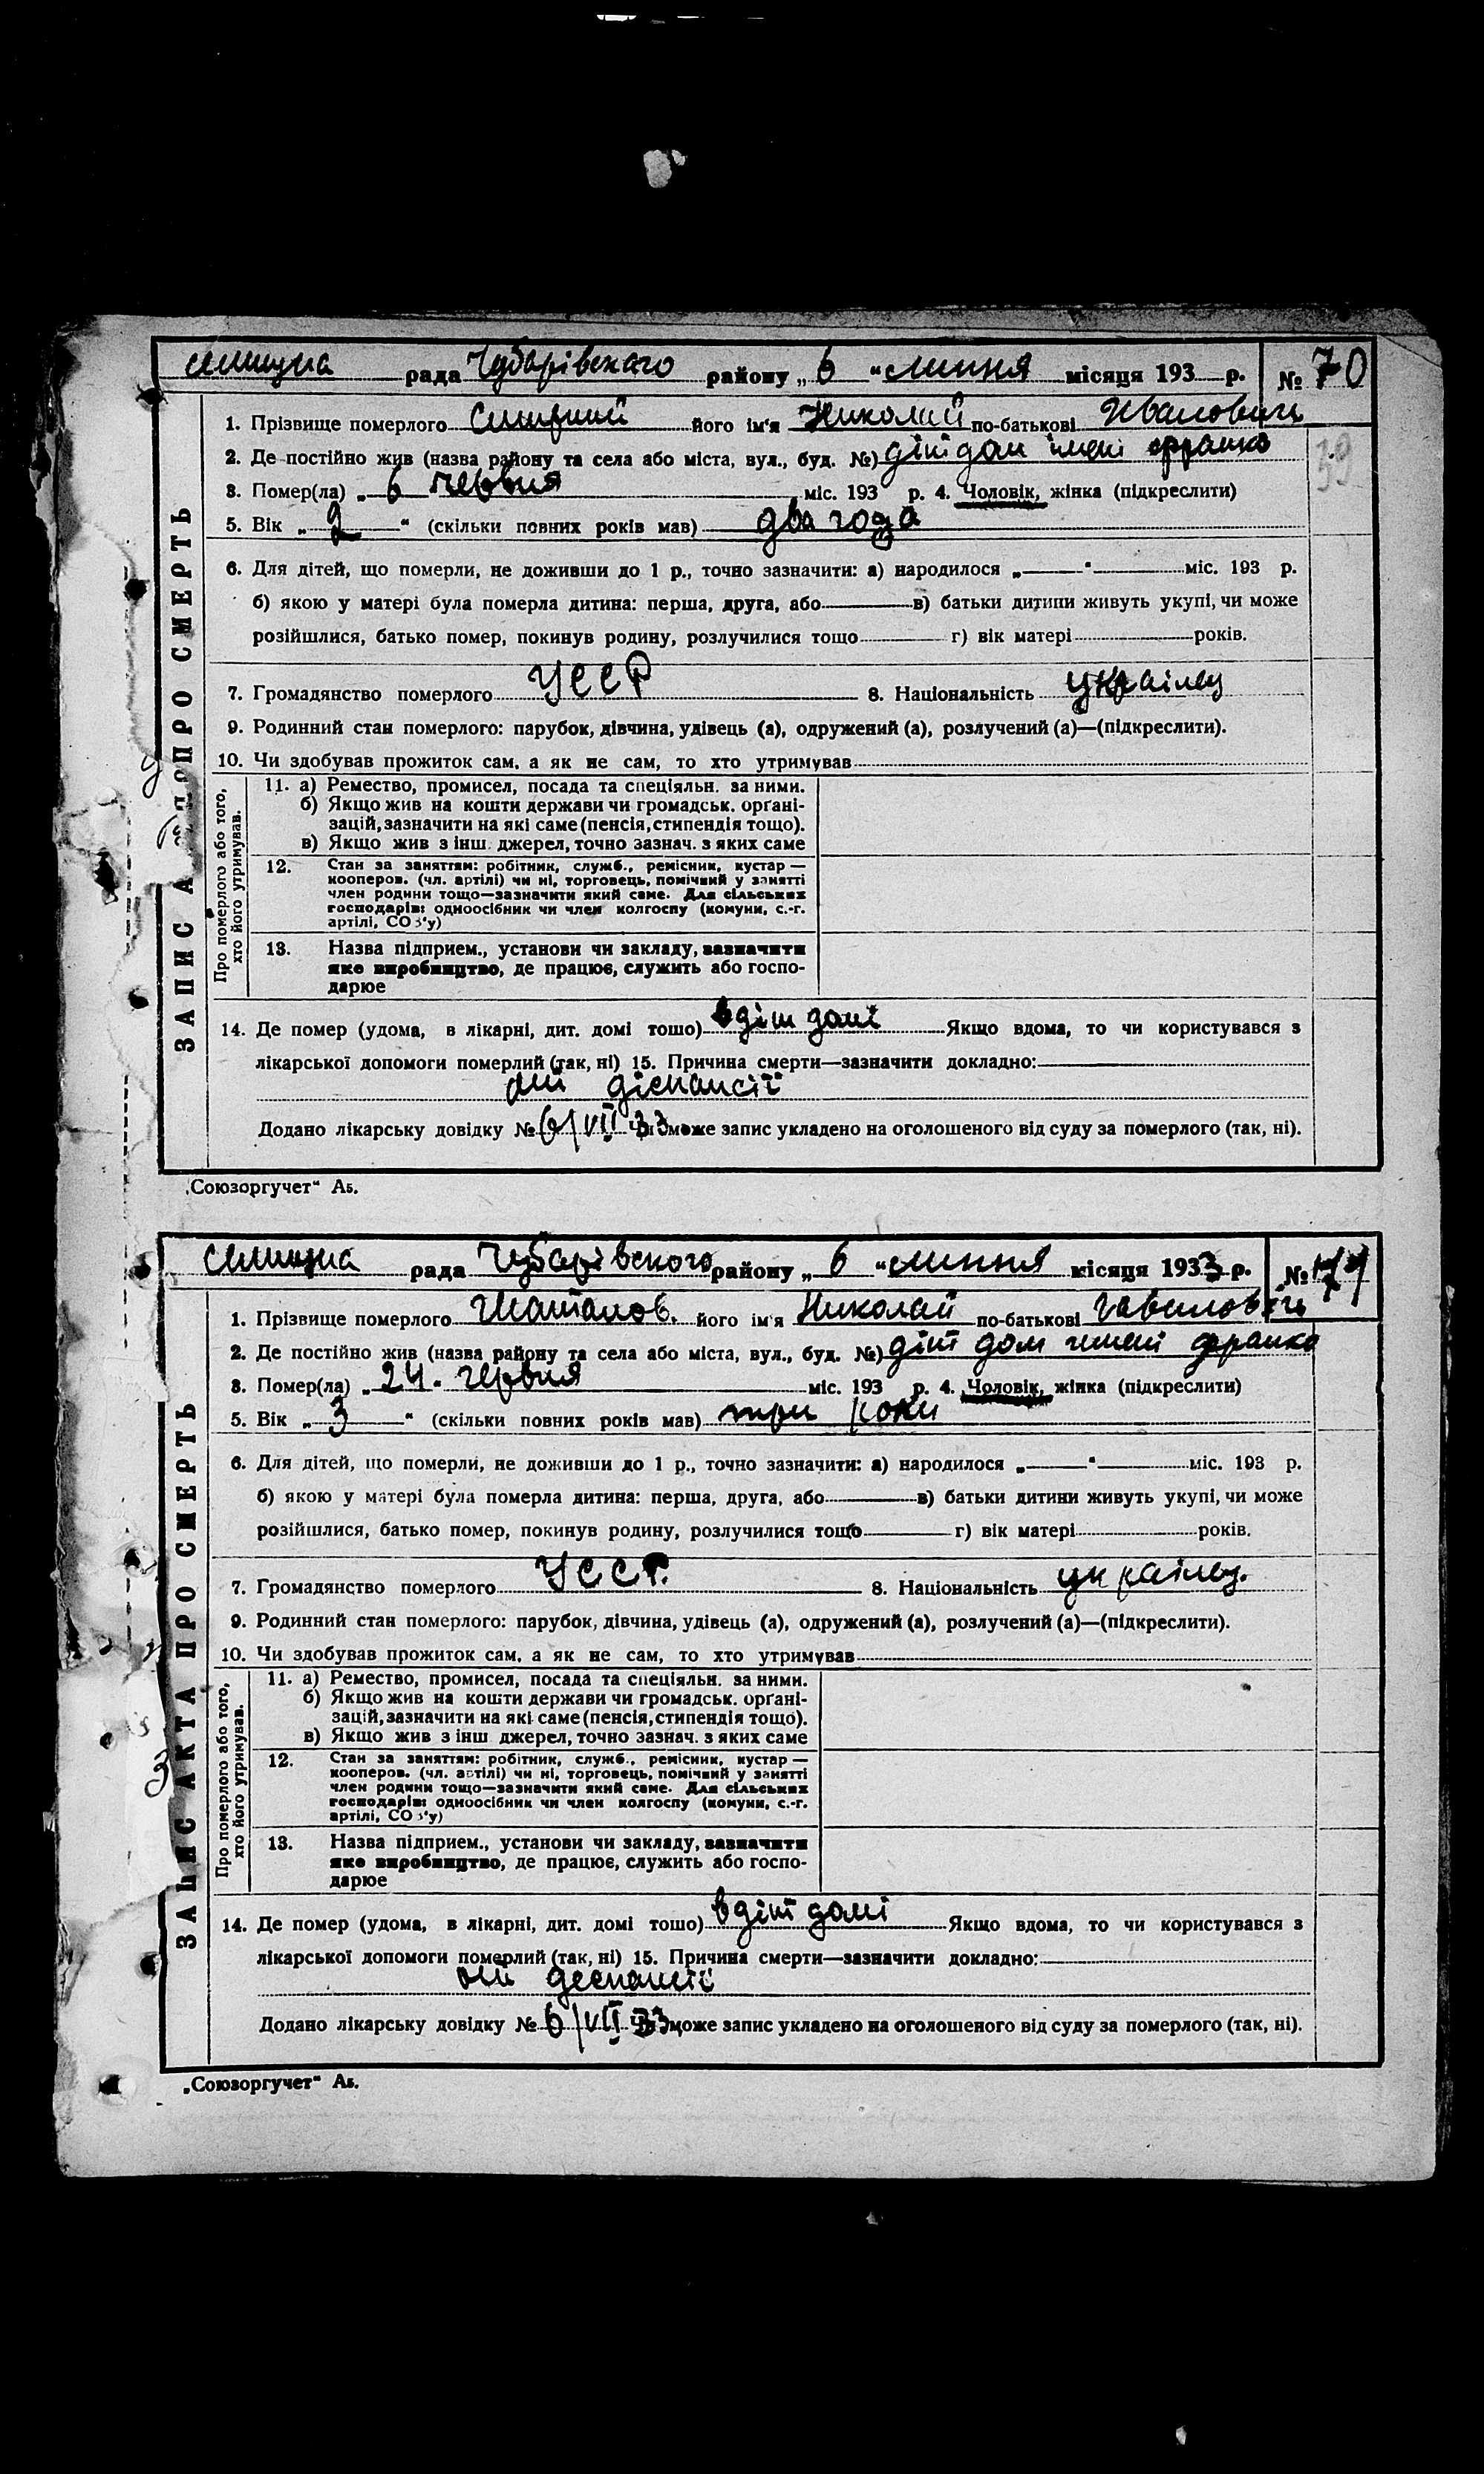 селищна рада Чубарівского району „ 6 “ липня місяця 193 р. № 70
39
ЗАПИС А ПРО СМЕРТЬ
1. Прізвище померлого його ім'я Николай по-батькові Иванович
2. Де постійно жив (назва району та села або міста, вул., буд. №) діт дом імені франко
3. Помер(ла) „ 6 червня міс. 193 р. 4. Чоловік, жінка (підкреслити)
5. Вік „ 2 “ (скільки повних років мав) два года
6. Для дітей, що померли, не доживши до 1 р., точно зазначити: а) народилося „ “ міс. 193 р.
б) якою у матері була померла дитина: перша, друга, або в) батьки дитини живуть укупі, чи може
розійшлися, батько помер, покинув родину, розлучилися тощо г) вік матері років.
7. Громадянство померлого УССР 8. Національність українец
9. Родинний стан померлого: парубок, дівчина, удівець (а), одружений (а), розлучений (а)—(підкреслити).
10. Чи здобував прожиток сам, а як не сам, то хто утримував
Про померлого або того, хто його утримував.
11. а) Ремество, промисел, посада та спеціяльн. за ними.
б) Якщо жив на кошти держави чи громадськ. орґані-
зацій, зазначити на які саме (пенсія, стипендія тощо).
в) Якщо жив з інш. джерел, точно зазнач. з яких саме
12. Стан за заняттям: робітник, служб., ремісник, кустар —
кооперов. (чл. артілі) чи ні, торговець, помічний у занятті
член родини тощо—зазначити який саме. Для сільських
господарів: одноосібник чи член колгоспу (комуни, с.-г.
артілі, СОЗ'у)
13. Назва підприєм., установи чи закладу, зазначити
яке виробництво, де працює, служить або госпо-
дарює
14. Де помер (удома, в лікарні, дит. домі тошо) в діт домі Якщо вдома, то чи користувався з
лікарської допомоги померлий (так, ні) 15. Причина смерти—зазначити докладно:
от діспансії
Додано лікарську довідку № 6/VII 33 Чи може запис укладено на оголошеного від суду за померлого (так, ні).
„Союзоргучет“ Аз.
селищна рада Чубарівского району „ 6 “ липня місяця 1933 р. №
ЗАПИС АКТА ПРО СМЕРТЬ
1. Прізвище померлого Шаталов. його ім'я Николай по-батькові Гаврилович
2. Де постійно жив (назва району та села або міста, вул., буд. №) діт дом імені франко
3. Помер(ла) „ 24. червня міс. 193 р. 4. Чоловік, жінка (підкреслити)
5. Вік „ 3 “ (скільки повних років мав) три роки
6. Для дітей, що померли, не доживши до 1 р., точно зазначити: а) народилося „ “ міс. 193 р.
б) якою у матері була померла дитина: перша, друга, або в) батьки дитини живуть укупі, чи може
розійшлися, батько помер, покинув родину, розлучилися тощо г) вік матері років.
7. Громадянство померлого УССР. 8. Національність українец.
9. Родинний стан померлого: парубок, дівчина, удівець (а), одружений (а), розлучений (а)—(підкреслити).
10. Чи здобував прожиток сам, а як не сам, то хто утримував
Про померлого або того, хто його утримував.
11. а) Ремество, промисел, посада та спеціяльн. за ними.
б) Якщо жив на кошти держави чи громадськ. орґані-
зацій, зазначити на які саме (пенсія, стипендія тощо).
в) Якщо жив з інш. джерел, точно зазнач. з яких саме
12. Стан за заняттям: робітник, служб., ремісник, кустар —
кооперов. (чл. артілі) чи ні, торговець, помічний у занятті
член родини тощо—зазначити який саме. Для сільських
господарів: одноосібник чи член колгоспу (комуни, с.-г.
артілі, СОЗ'у)
13. Назва підприєм., установи чи закладу, зазначити
яке виробництво, де працює, служить або госпо-
дарює
14. Де помер (удома, в лікарні, дит. домі тошо) в діт домі Якщо вдома, то чи користувався з
лікарської допомоги померлий (так, ні) 15. Причина смерти—зазначити докладно:
от деспансії
Додано лікарську довідку № 6/VII 33 Чи може запис укладено на оголошеного від суду за померлого (так, ні).
„Союзоргучет“ Аз.